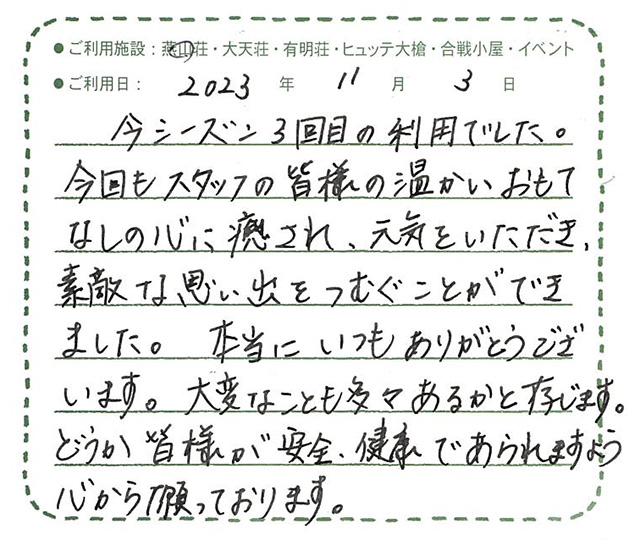 ●ご利用施設：燕山荘・大天荘・有明荘・ヒュッテ大槍・合戦小屋・イベント
●ご利用日： 2023 年 11 月 3 日
今シーズン3回目の利用でした。
今回もスタッフの皆様の温かいおもて
なしの心に癒され、元気をいただき、
素敵な思い出をつむぐことができ
ました。 本当にいつもありがとうござ
います。大変なことも多々あるかと存じます。
どうか皆様が安全、健康であられますよう
心から願っております。